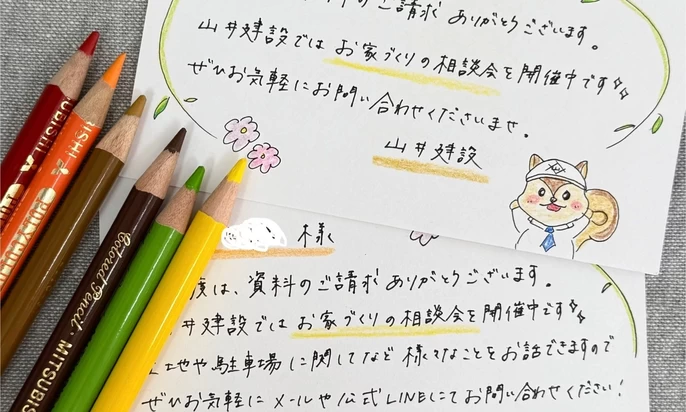 のご請求 ありがとうございます。
山井建設では お家づくりの相談会を開催中です
ぜひお気軽にお問い合わせくださいませ。
山井建設
様
度は、資料のご請求 ありがとうございます。
井建設では お家づくりの相談会を開催中です
土地や駐車場に関してなど 様々なことをお話できますので
ぜひお気軽に メールや公式LINEにて お問い合わせください!
Colored Pencil・MITSUBIS